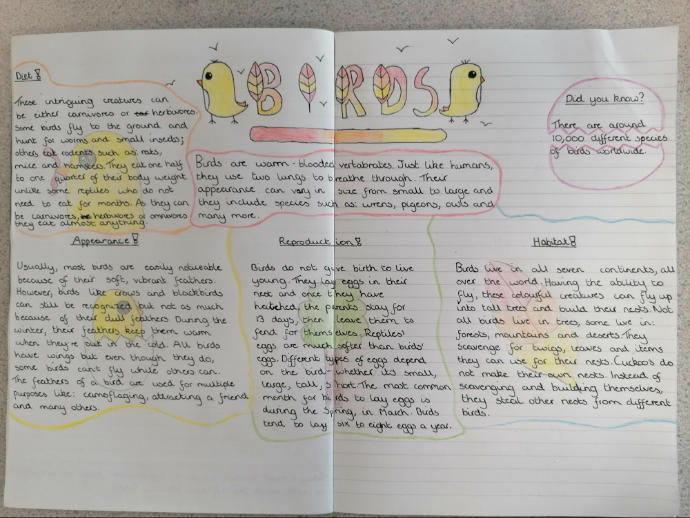 BIRDS
Diet!
These intriguing creatures can
be either carnivores or herbivores.
Some birds fly to the ground and
hunt for worms and small insects;
others eat rodents such as: rats,
mice and hamsters. They eat one half
to one quarter of their body weight
unlike some reptiles who do not
need to eat for months. As they can
be carnivores, herbivores or omnivores
they eat almost anything.
Birds are warm-blooded vertabrates. Just like humans,
they use two lungs to breathe through. Their
appearance can vary in size from small to large and
they include species such as: wrens, pigeons, owls and
many more.
Did you know?
There are around
10,000 different species
of birds worldwide.
Appearance!
Usually, most birds are easily noticeable
because of their soft, vibrant feathers.
However, birds like crows and blackbirds
can still be recognised but not as much
because of their dull feathers. During the
winter, their feathers keep them warm
when they're out in the cold. All birds
have wings but even though they do,
some birds can't fly while others can.
The feathers of a bird are used for multiple
purposes like: camoflaging, attracting a friend
and many others.
Reproduction!
Birds do not give birth to live
young. They lay eggs in their
nest and once they have
hatched, the parents stay for
13 days, then leave them to
fend for themselves. Reptiles'
eggs are much softer than birds'
eggs. Different types of eggs depend
on the bird: whether its small,
large, tall, short. The most common
month for birds to lay eggs is
during the Spring, in March. Birds
tend to lay six to eight eggs a year.
Habitat!
Birds live in all seven continents, all
over the world. Having the ability to
fly, these colourful creatures can fly up
into tall trees and build their nests. Not
all birds live in trees, some live in:
forests, mountains and deserts. They
scavenge for twigs, leaves and items
they can use for their nests. Cuckoo's do
not make their own nests. Instead of
scavenging and building themselves,
they steal other nests from different
birds.